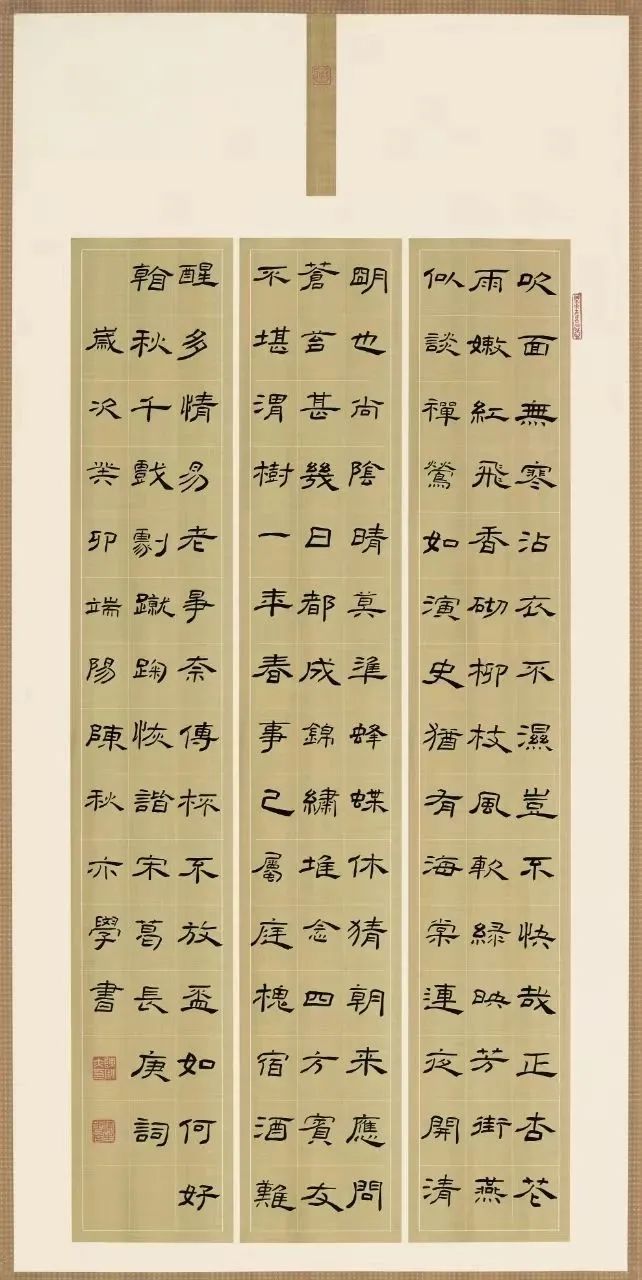 吹面無寒沾衣不濕豈不快哉正杏花
雨嫩紅飛香砌柳枝風軟綠映芳街燕
似談禪鶯如演史猶有海棠連夜開清
明也尚陰晴莫準蜂蝶休猜朝来應問
蒼苔甚幾日都成錦繡堆念四方賓友
不堪渭樹一年春事已屬庭槐宿酒難
醒多情易老爭奈傳杯不放盃如何好
看秋千戲劇蹴踘恢諧宋葛長庚詞
歲次癸卯端陽陳秋亦學書